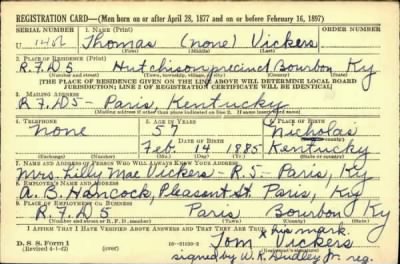 REGISTRATION CARD—(Men born on or after April 28, 1877 and on or before February 16, 1897)
SERIAL NUMBER 1. NAME (Print) ORDER NUMBER
U Thomas (none) Vickers
(First) (Middle) (Last)
2. PLACE OF RESIDENCE (Print)
R.F.D5 Hutchison precinct Bourbon Ky
(Number and street) (Town, township, village, or city) (County) (State)
[THE PLACE OF RESIDENCE GIVEN ON THE LINE ABOVE WILL DETERMINE LOCAL BOARD
JURISDICTION; LINE 2 OF REGISTRATION CERTIFICATE WILL BE IDENTICAL]
3. MAILING ADDRESS
R F.D5- Paris, Kentucky
(Mailing address if other than place indicated on line 2. If same insert word same)
4. TELEPHONE 5. AGE IN YEARS 6. PLACE OF BIRTH
none 57 Nicholas
DATE OF BIRTH (Town or county)
Feb. 14 1885 Kentucky
(Exchange) (Number) (Mo.) (Day) (Yr.) (State or country)
7. NAME AND ADDRESS OF PERSON WHO WILL ALWAYS KNOW YOUR ADDRESS
Mrs. Lilly Mae Vickers - R.5- Paris, Ky
8. EMPLOYER'S NAME AND ADDRESS
A. B. Hancock, Pleasant St. Paris, Ky
9. PLACE OF EMPLOYMENT OR BUSINESS
R.F.D5 Paris Bourbon Ky
(Number and street or R. F. D. number) (Town) (County) (State)
I AFFIRM THAT I HAVE VERIFIED ABOVE ANSWERS AND THAT THEY ARE TRUE.
x his mark
D. S. S. Form 1 Tom Vickers
(Revised 4-1-42) (over) 16-21630-2
signed by W. R. Dudley Jr. reg.